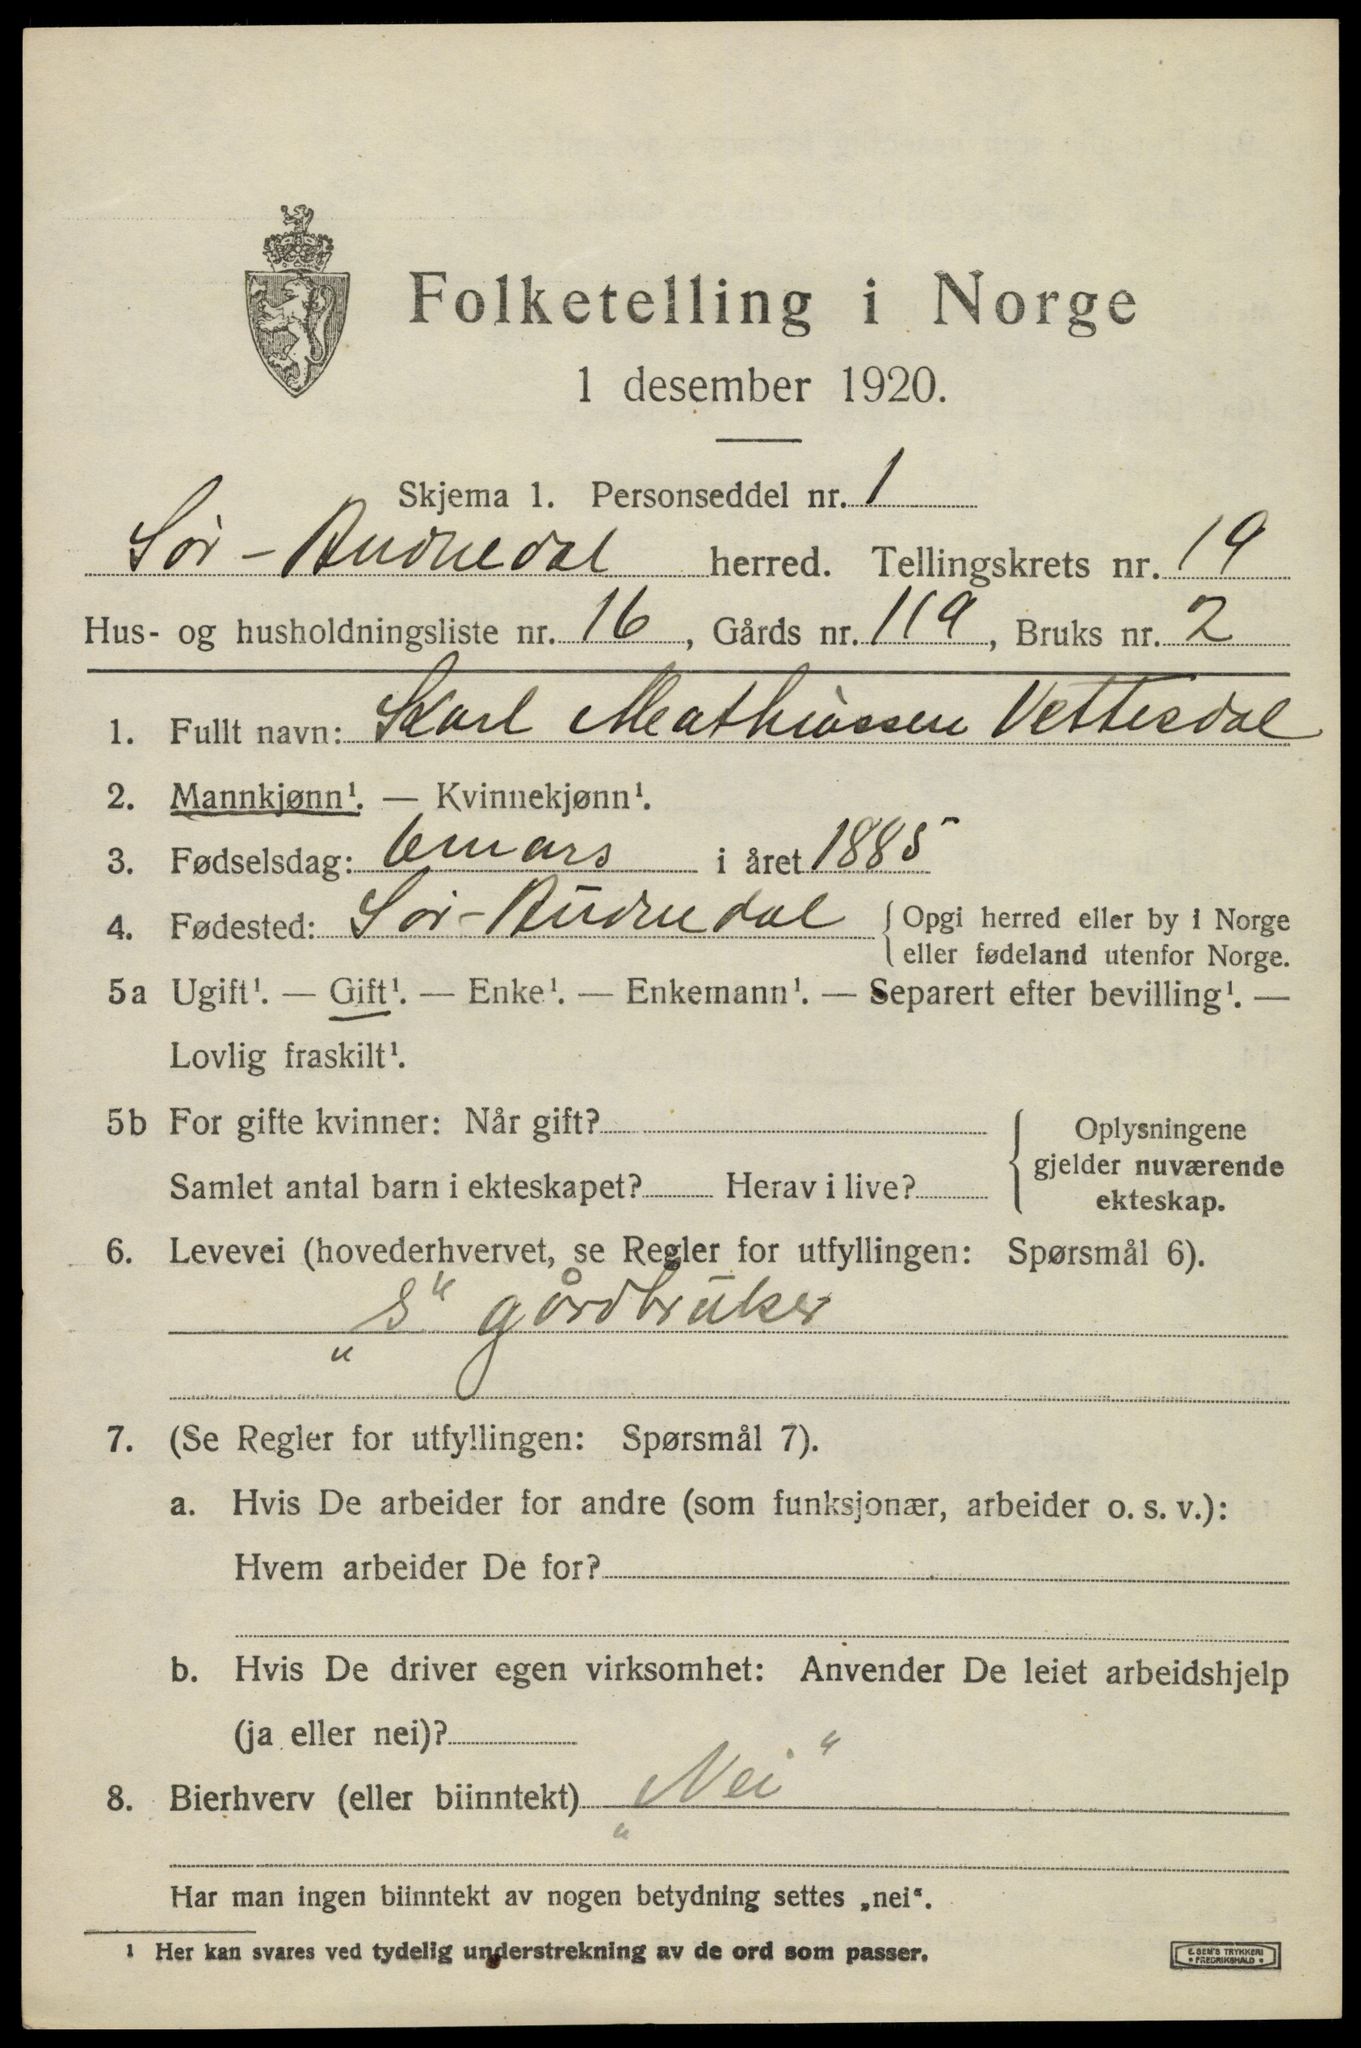 Folketelling i Norge
1 desember 1920.
Skjema 1. Personseddel nr. 1
Sør-Audnedal herred. Tellingskrets nr. 19
Hus- og husholdningsliste nr. 16, Gårds nr. 119, Bruks nr. 2
1. Fullt navn: Karl Mathiassen Vettesdal
2. Mannkjønn¹. — Kvinnekjønn¹.
3. Fødselsdag: 6 mars i året 1885
4. Fødested: Sør-Audnedal {Opgi herred eller by i Norge
eller fødeland utenfor Norge.
5a Ugift¹. — Gift¹. — Enke¹. — Enkemann¹. — Separert efter bevilling¹. —
Lovlig fraskilt¹.
5b For gifte kvinner: Når gift?
Samlet antal barn i ekteskapet? Herav i live?
{Oplysningene
gjelder nuværende
ekteskap.
6. Levevei (hovederhvervet, se Regler for utfyllingen: Spørsmål 6).
„S“ gårdbruker
7. (Se Regler for utfyllingen: Spørsmål 7).
a. Hvis De arbeider for andre (som funksjonær, arbeider o. s. v.):
Hvem arbeider De for?
b. Hvis De driver egen virksomhet: Anvender De leiet arbeidshjelp
(ja eller nei)?
8. Bierhverv (eller biinntekt) „Nei“
Har man ingen biinntekt av nogen betydning settes „nei“.
¹ Her kan svares ved tydelig understrekning av de ord som passer.
E. SEM'S TRYKKERI
• FREDRIKSHALD •